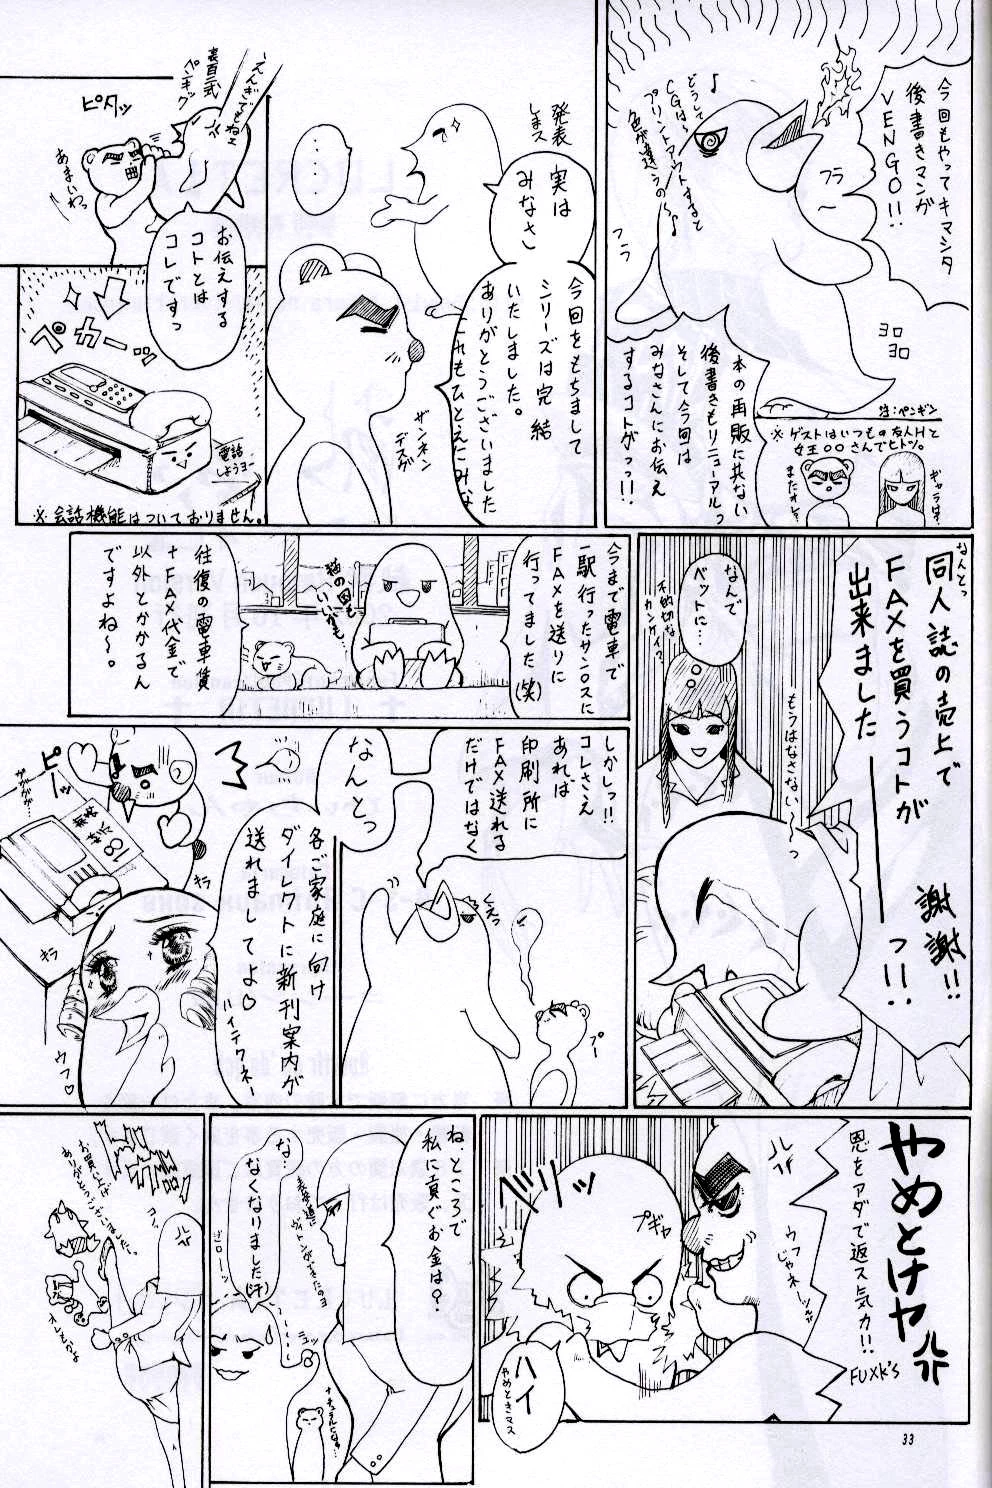 今回もやってキマシタ
後書きマンガ
VENGO!!
フラ〜
♪どうして
CGは〜
プリントアウトすると
色が違うの〜♪
フラ
ヨロ
ヨロ
注:ペンギン
本の再販に共ない
後書きもリニューアルっ
そして今回は
みなさんにお伝え
するコトがっっ!!
※ゲストはいつもの友人Hと
女王○○さんでヒトツ。
ギャラは?
またオレ?
発表
しまス
実は
みなさん
……
今回をもちまして
シリーズは完結
いたしました。
ありがとうございました
これもひとえにみな
ザンネン
デスゲ
えんぎでもねェ
ペキッグ
ピタッ
あまいわっ
お伝えする
コトとは
コレですっ
ペカーッ
電話
しようヨー
※会話機能はついておりません。
なんとっ
同人誌の売上で
FAXを買うコトが
出来ました―――っ!!
謝謝!!
もうはなさない〜っ
なんで
ベットに…
不適切な
カンケイ?
今まで電車で
一駅行ったサンクスに
FAXを送りに
行ってました(笑)
猫の図も
いいかも…
往復の電車賃
+FAX代金で
以外とかかるん
ですよね〜。
しかしっ!!
コレさえ
あれば
印刷所に
FAX送れる
だけではなく
くるっ
プー
なんとっ
各ご家庭に向け
ダイレクトに新刊案内が
送れましてよ♡
ハイテクネー
ピーッ
ガガガガ…
18禁
キラ
キラ
ウフ♡
やめとけヤ
恩をアダで返ス気カ!!
FUXK'S
ウフじゃネー
バリッ
プギャ
ハイ
やめときマス
ね、ところで
私に貢ぐお金は?
表参道に
ヴィトンができたのヨ
な…
なくなりました(汗)
ギローン
ニュッ
ナチュラルになっ…
ドカッ
お買い上げ
ありがとうございました。
オレもかよ
33